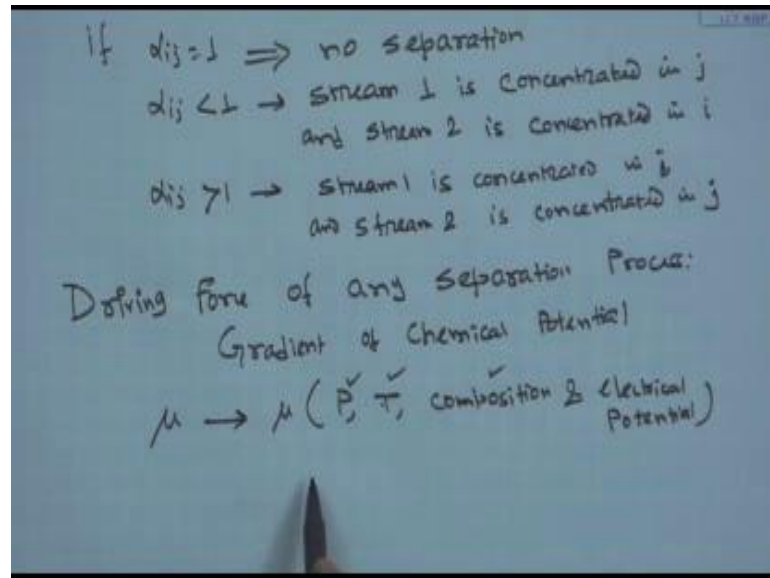 if αij = 1 ⟹ no separation
αij < 1 → stream 1 is concentrated in j
and stream 2 is concentrated in i
αij > 1 → stream 1 is concentrated in i
and stream 2 is concentrated in j
Driving force of any separation Process:
Gradient of Chemical Potential
μ → μ ( P, T, composition & Electrical
Potential )